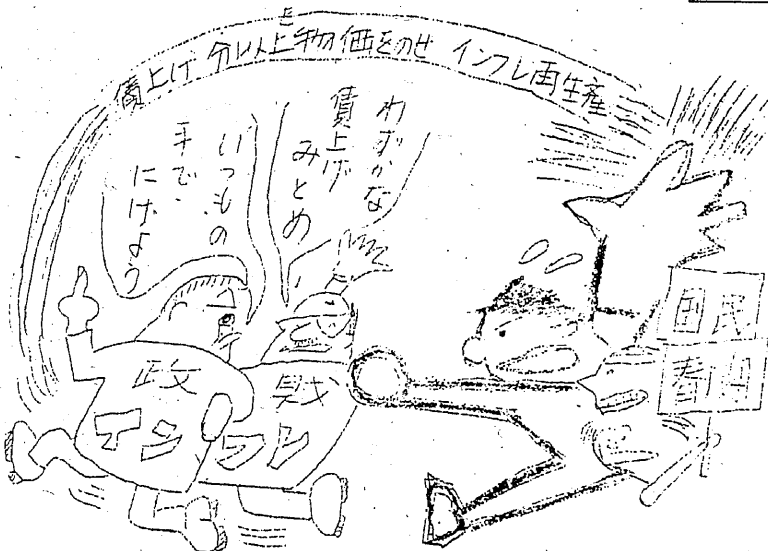 賃上げ 分以上物価をのせ インフレ再生産
わずかな
賃上げ
みとめ、
いつもの
手で、
にげよう
政
財
国民
春闘